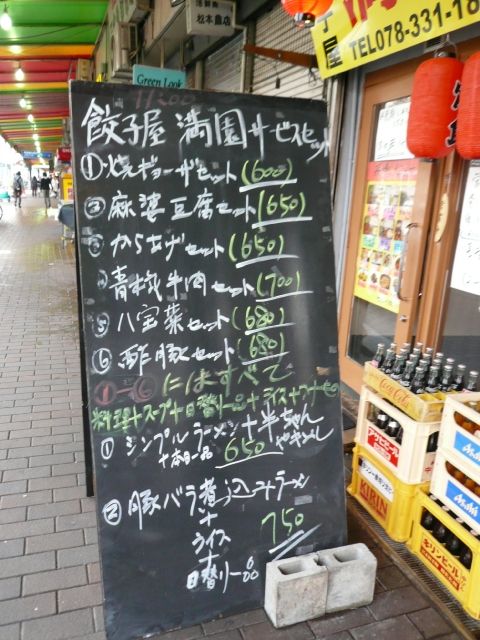 松本畳店
Green Look
丁屋
TEL 078-331-18
餃子屋 満園サービスセット
①焼ギョーザセット(600)
②麻婆豆腐セット(650)
③からあげセット(650)
④青椒牛肉セット(700)
⑤八宝菜セット(680)
⑥酢豚セット(680)
①-⑥にはすべて
料理+スープ+日替り一品+ライス+
①シンプルラーメン+半ちゃん
+本日一品 650
②豚バラ煮込み+ラーメン
+
ライス 750
+
日替り一品
Coca-Cola
アサヒビール
Asahi
KIRIN
Asahi
キリンビール